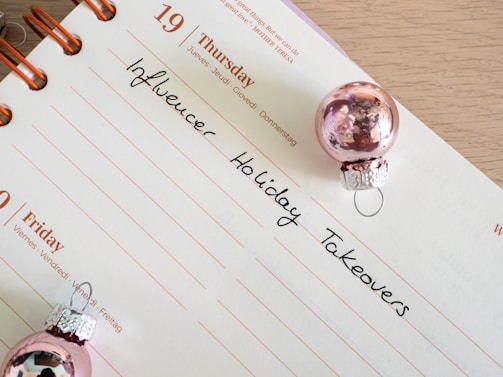 great things. But we can do
great love."
MOTHER TERESA
19
Thursday
Jueves · Jeudi · Giovedì · Donnerstag
Influencer Holiday Takeovers
Friday
Viernes · Vendredi · Venerdì · Freitag
W